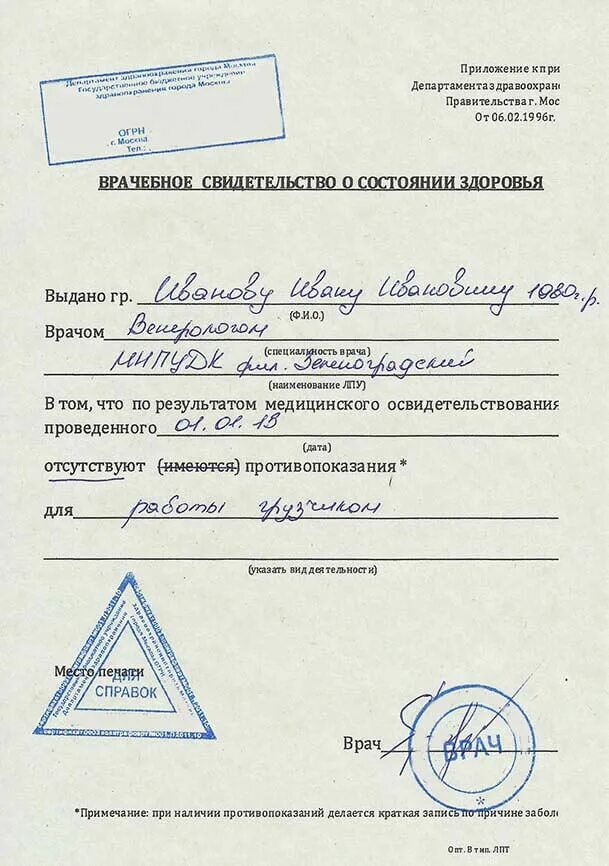 Департамент здравоохранения города Москвы
Государственное бюджетное учреждение
здравоохранения города Москвы
ОГРН
г. Москва
Тел.:
Приложение к при
Департамента здравоохран
Правительства г. Мос
От 06.02.1996г.
ВРАЧЕБНОЕ СВИДЕТЕЛЬСТВО О СОСТОЯНИИ ЗДОРОВЬЯ
Выдано гр. Иванову Ивану Ивановичу 1980г.р.
(Ф.И.О.)
Врачом Венерологом
(специальность врача)
МНПЦДК фил. Зеленоградский
(наименование ЛПУ)
В том, что по результатом медицинского освидетельствования
проведенного 01.01.19
(дата)
отсутствуют (имеются) противопоказания *
для работы грузчиком
(указать вид деятельности)
Место печати
ДЛЯ
СПРАВОК
Врач
ВРАЧ
*Примечание: при наличии противопоказаний делается краткая запись по причине забол
Опт. В тип. ЛПТ